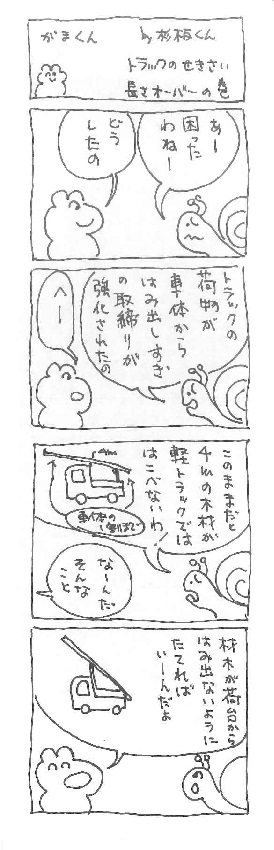 がまくん
by 杉板くん
トラックのせきさい
長さオーバーの巻
あー
困った
わねー
どう
したの
トラックの
荷物が
車体から
はみ出しすぎ
の取締りが
強化されたの
へー
このままだと
4mの木材が
軽トラックでは
はこべないわ!
4m
車体の
1割まで
なーんだ
そんな
こと
材木が荷台から
はみ出ないように
たてれば
いーんだよ